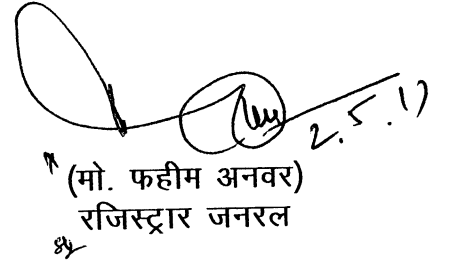 2.5.17
(मो. फहीम अनवर)
रजिस्ट्रार जनरल